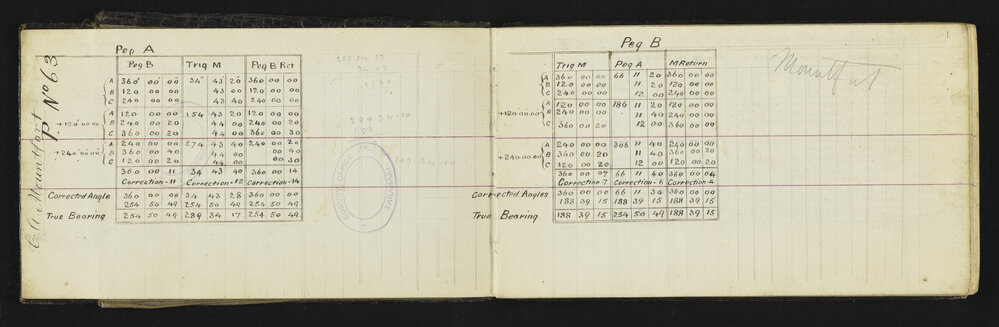 C.A. Mountfort
P. No 63
Peg A
Peg B Trig M Peg B Ret
A 360° 00 00 34° 43 20 360 00 00
B 120 00 00 43 00 120 00 00
C 240 00 00 43 40 240 00 00
+120° 00 00
A 120 00 00 154 43 20 120 00 00
B 240 00 20 44 00 240 00 20
C 360 00 20 44 00 360 00 30
+240° 00 00
A 240 00 00 274 43 40 240 00 20
B 360 00 40 44 00 00 40
C 120 00 20 44 00 00 30
360 00 11 34 43 40 360 00 14
Correction -11 Correction -12 Correction -14
Corrected Angle 360 00 00 34 43 28 360 00 00
254 50 49 254 50 49 254 50 49
True Bearing 254 50 49 289 34 17 254 50 49
289 34 10
Peg B
Trig M Peg A M Return
A 360 00 00 66 11 20 360 00 00
B 120 00 00 11 20 120 00 00
C 240 00 00 12 00 240 00 00
+120 00 00
A 120 00 00 186 11 20 120 00 00
B 240 00 00 11 40 240 00 00
C 360 00 20 12 00 360 00 00
+240 00 00
A 240 00 00 306 11 40 240 00 00
B 360 00 20 11 40 360 00 20
C 120 00 20 12 00 120 00 20
360 00 07 66 11 40 360 00 04
Correction -7 Correction -6 Correction -4
Corrected Angles 360 00 00 66 11 34 360 00 00
188 39 15 188 39 15 188 39 15
True Bearing 188 39 15 254 50 49 188 39 15